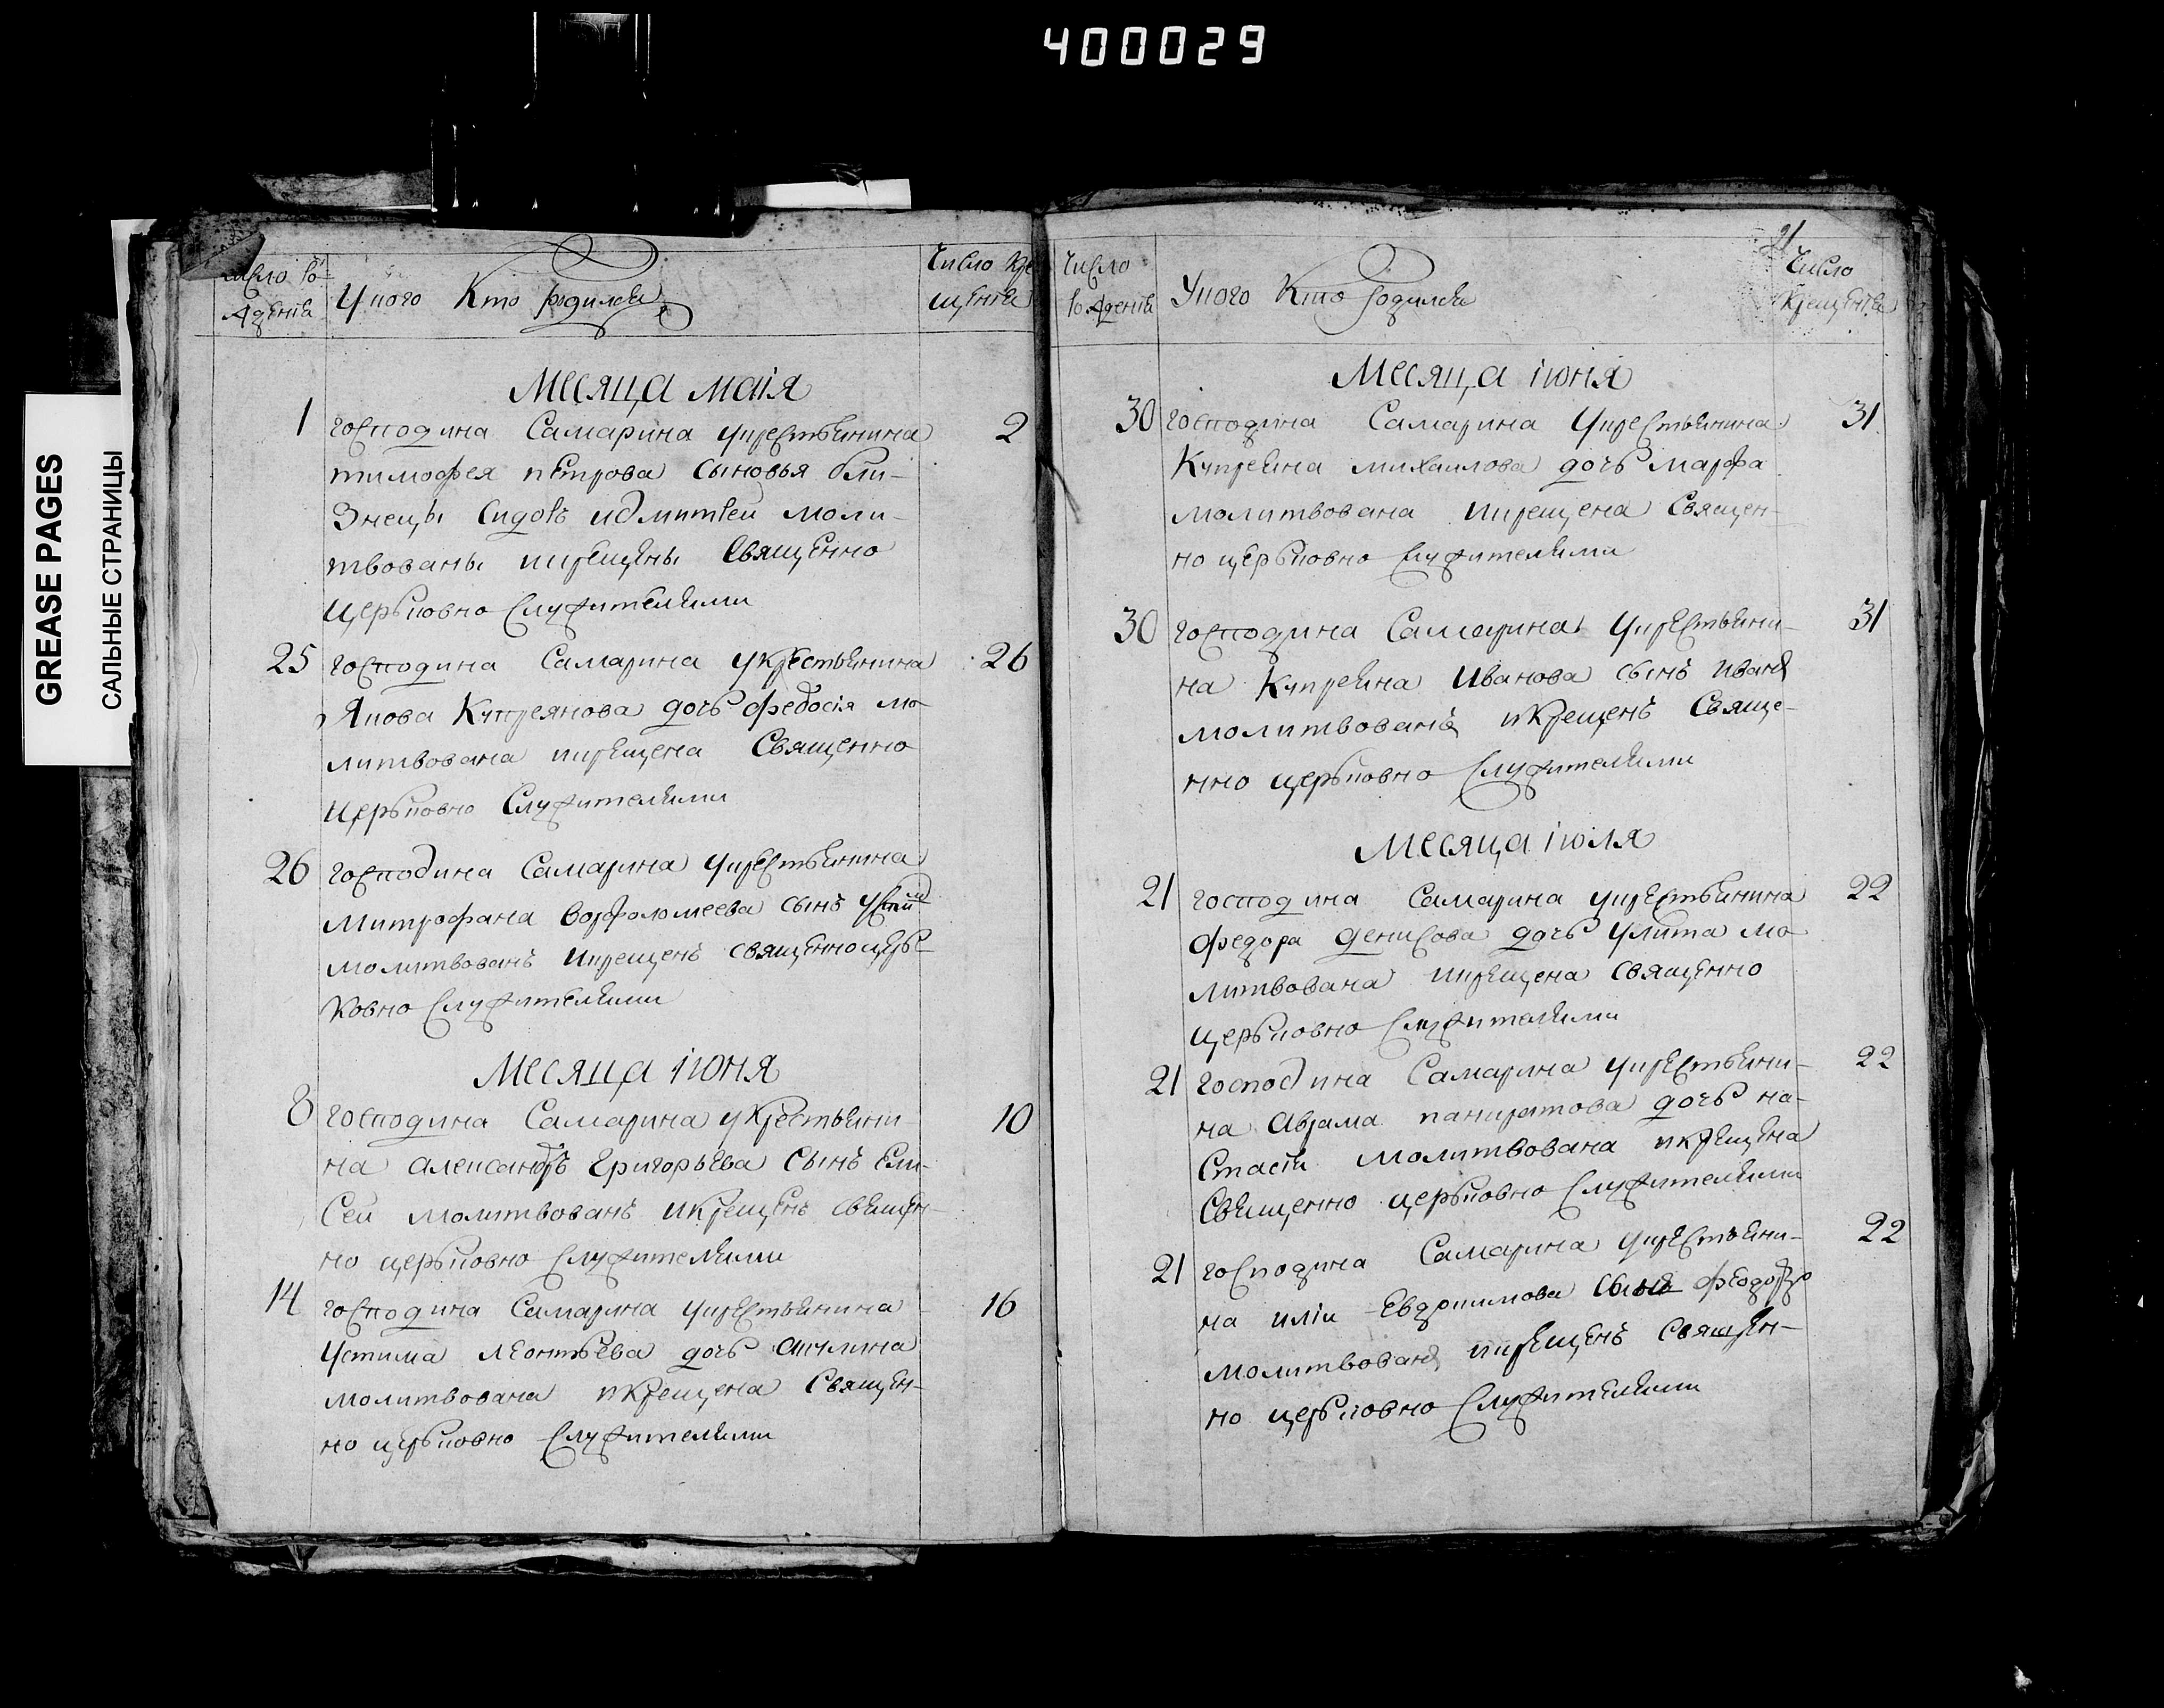 400029
GREASE PAGES
САЛЬНЫЕ СТРАНИЦЫ
Число ро-
жденїя
У кого Кто родился
Число кре
щенїя
Месяца маія
1 господина Самарина укрестьянина 2
тимофея петрова сыновья бли-
знецы Сидоръ идмитрей моли-
твованы икрещены священно
церьковно служителями
25 господина Самарина укрестьянина 26
Якова Купреянова дочь федосія мо
литвована икрещена Священно
церьковно Служителями
26 господина Самарина укрестьянина
митрофана ворфоломеева сынъ
молитвованъ икрещенъ священноцерь
ковно служителями
Месяца іюня
8 господина Самарина укрестьяни 10
на александръ григорьева сынъ Ели-
Сей молитвованъ икрещенъ священ-
но церьковно служителями
14 господина Самарина укрестьянина 16
устима леонтьева дочь акилина
молитвована икрещена Священ-
но церьковно служителями
21
Число
рожденїя
У кого Кто родился
Число
крещенїя
Месяца іюня
30 господина Самарина укрестьянина 31
Купреяна михаилова дочь марфа
молитвована икрещена Священ-
но церьковно служителями
30 господина Самарина укрестьяни- 31
на Купреяна Иванова сынъ иванъ
молитвованъ икрещенъ Свяще-
нно церьковно служителями
Месяца іюля
21 господина Самарина укрестьянина 22
федора денисова дочь улита мо
литвована икрещена священно
церьковно служителями
21 господина Самарина укрестьяни- 22
на аврама панкратова дочь на-
Стасія молитвована икрещена
Священно церьковно служителями
21 господина Самарина укрестьяни- 22
на иліи Евдокимова сынъ феодоръ
молитвованъ икрещенъ священ-
но церьковно служителями